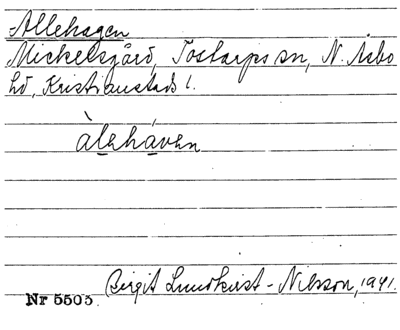 Allehagen
Mickelsgård, Tostarps sn, N. Åsbo
hd, Kristianstads l.
àleháven
Birgit Lundkvist-Nilsson, 1941.
Nr 5503